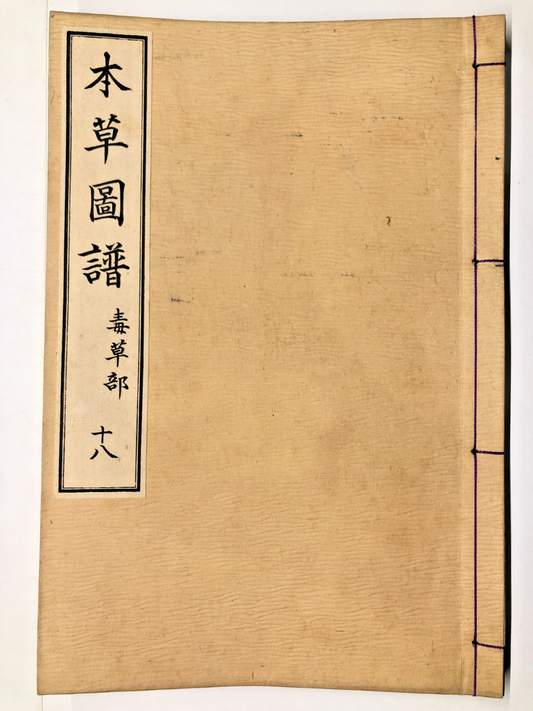 本草圖譜
毒草部
十八